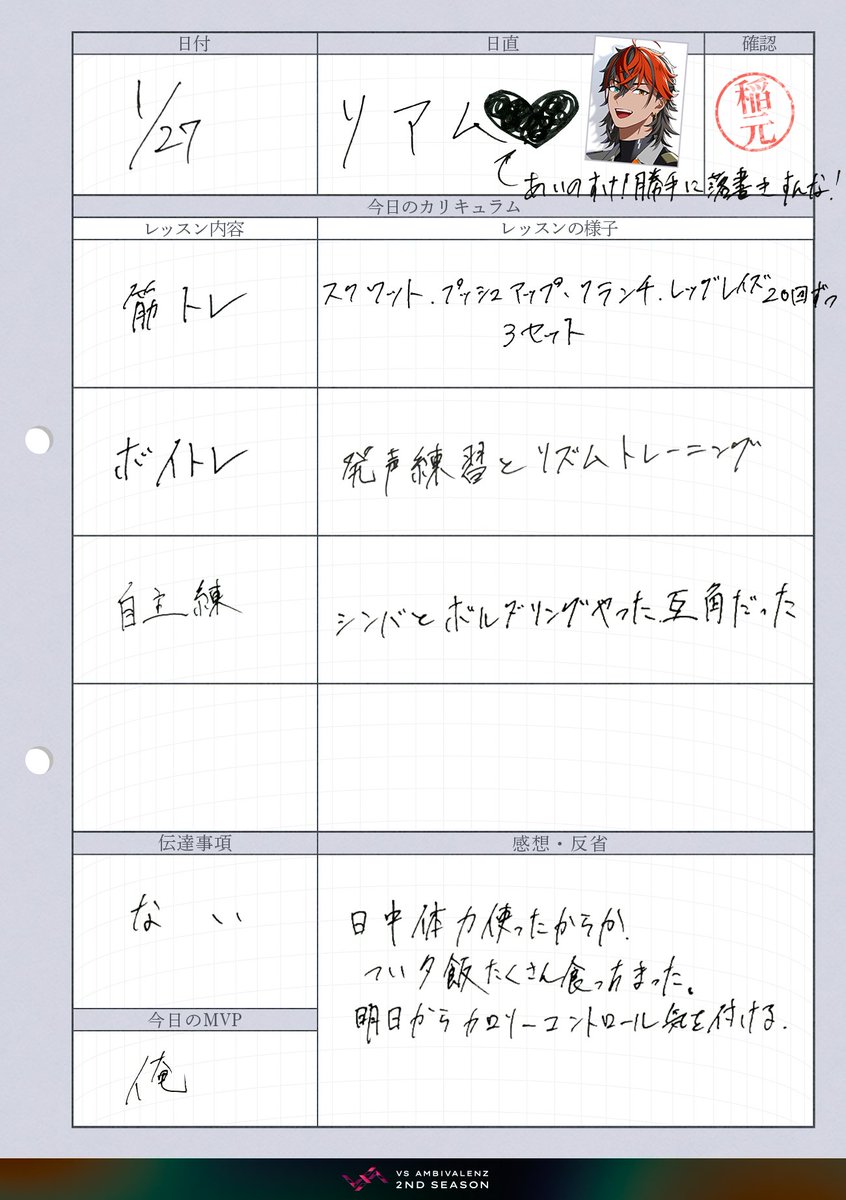 日付
日直
確認
1/27
リアム
稲元
あいのすけ!勝手に落書きすんな!
今日のカリキュラム
レッスン内容
レッスンの様子
筋トレ
スクワット、プッシュアップ、クランチ、レッグレイズ20回ずつ
3セット
ボイトレ
発声練習とリズムトレーニング
自主練
シンバとボルダリングやった、互角だった
伝達事項
感想・反省
ない
日中体力使ったからか、
つい夕飯たくさん食っちまった。
明日からカロリーコントロール気を付ける.
今日のMVP
俺
VS AMBIVALENZ
2ND SEASON